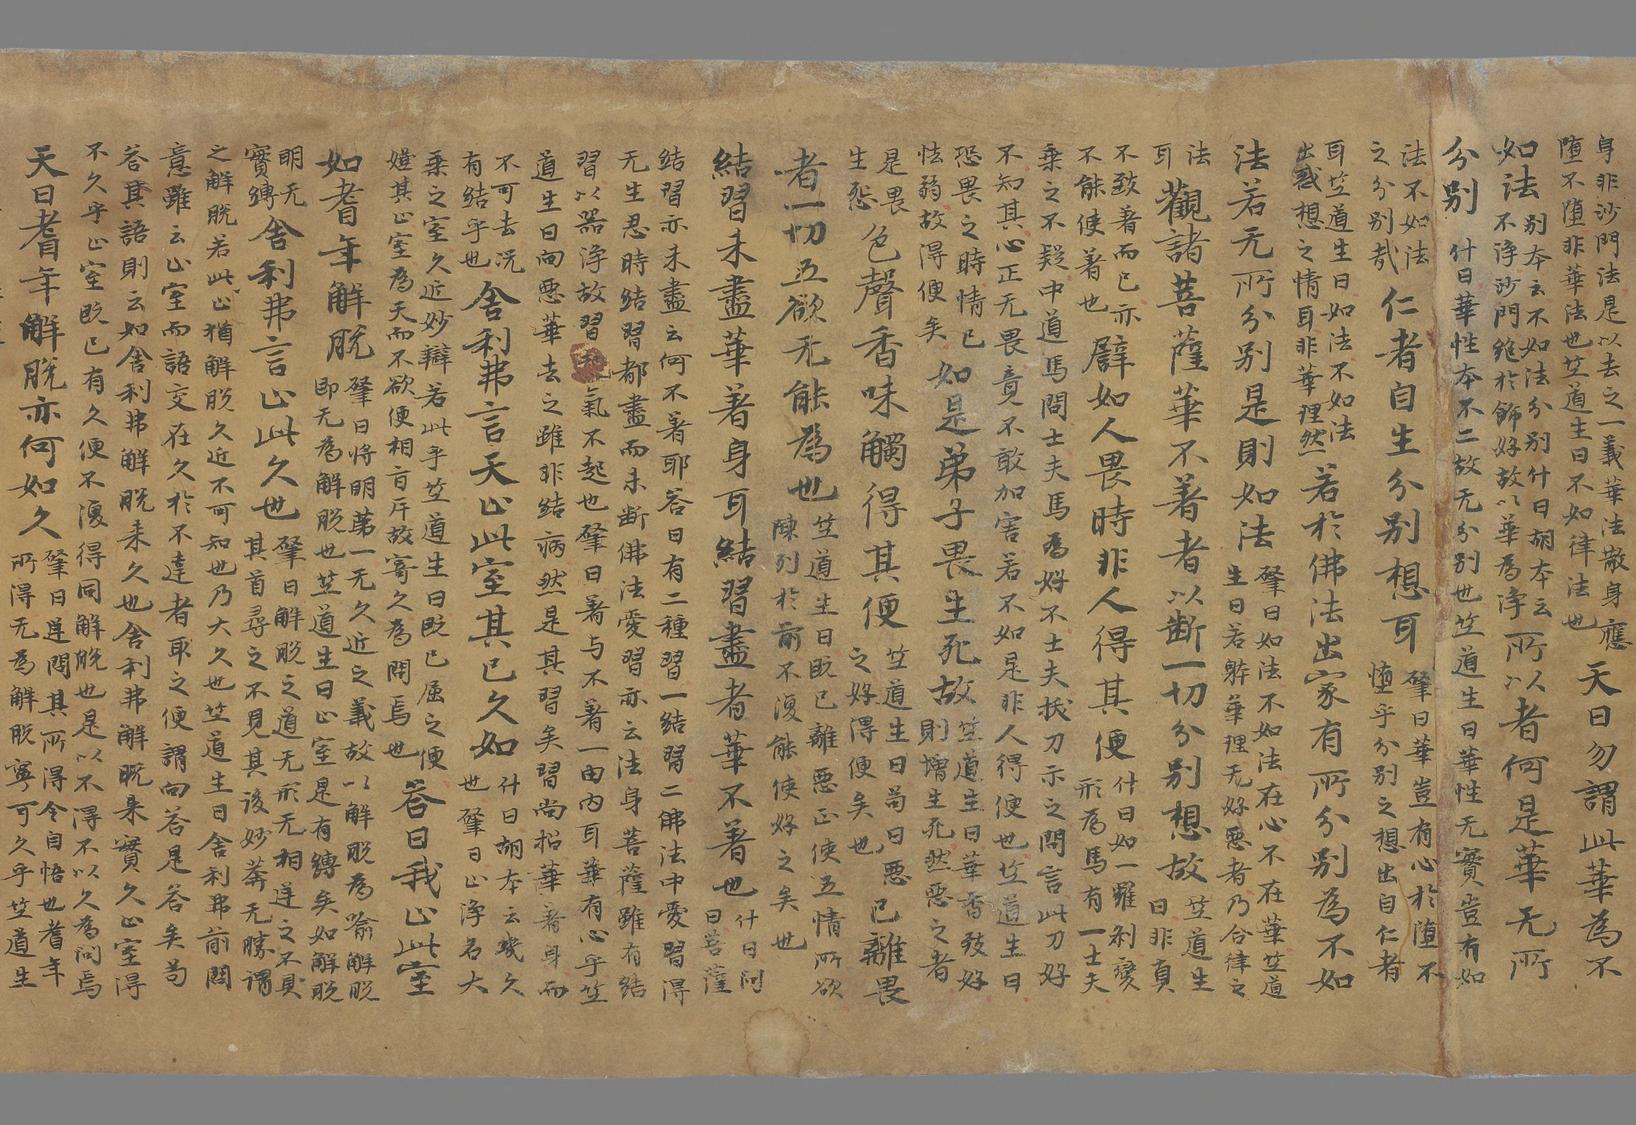 身非沙門法是以去之一義華法散身應
墮不墮非華法也竺道生曰不如律法也
天曰勿謂此華為不
如法
別本云不如法分別什曰胡本云
不淨沙門絕於飾好故以華為淨
所以者何是華无所
分別
什曰華性本不二故无分別也竺道生曰華性无實豈有如
法不如法
之分別哉
仁者自生分別想耳
肇曰華豈有心於墮不
墮乎分別之想出自仁者
耳竺道生曰如法不如法
出惑想之情耳非華理然
若於佛法出家有所分別為不如
法若无所分別是則如法
肇曰如法不如法在心不在華竺道
生曰若體華理无好惡者乃合律之
法
耳
觀諸菩薩華不著者以斷一切分別想故
竺道生
曰非真
不致著而已亦
不能使著也
譬如人畏時非人得其便
什曰如一羅剎變
形為馬有一士夫
乘之不疑中道馬問士夫馬為好不士夫拔刀示之問言此刀好
不知其心正无畏竟不敢加害若不如是非人得便也竺道生曰
恐畏之時情已
怯弱故得便矣
如是弟子畏生死故
竺道生曰華香致好
則增生死然惡之者
是畏
生惡
色聲香味觸得其便
竺道生曰苟曰惡
之好得便矣也
已離畏
者一切五欲无能為也
竺道生曰既已離惡正使五情所欲
陳列於前不復能使好之矣也
結習未盡華著身耳結習盡者華不著也
什曰問
曰菩薩
結習亦未盡云何不著耶答曰有二種習一結習二佛法中愛習得
无生忍時結習都盡而未斷佛法愛習亦云法身菩薩雖有結
習以器淨故習氣不起也肇曰著与不著一由內耳華有心乎竺
道生曰向惡華去之雖非結病然是其習矣習尚招華著身而
不可去況
有結乎也
舍利弗言天止此室其已久如
什曰胡本云幾久
也肇曰止淨名大
乘之室久近妙辯若此乎竺道生曰既已屈之便
嫌其止室為天而不欲便相盲斥故寄久為問焉也
答曰我止此室
如耆年解脫
肇曰將明第一无久近之義故以解脫為喻解脫
即无為解脫也竺道生曰止室是有縛矣如解脫
明无
實縛
舍利弗言止此久也
肇曰解脫之道无形无相逆之不見
其首尋之不見其後妙莽无勝謂
之解脫若此止猶解脫久近不可知也乃大久也竺道生曰舍利弗前問
意雖云止室而語交在久於不達者取之便謂向答是答矣苟
答其語則云如舍利弗解脫來久也舍利弗解脫來實久止室得
不久乎止室既已有久便不復得同解脫也是以不得不以久為問焉
天曰耆年解脫亦何如久
肇曰逆問其所得令自悟也耆年
所得无為解脫寧可久乎竺道生